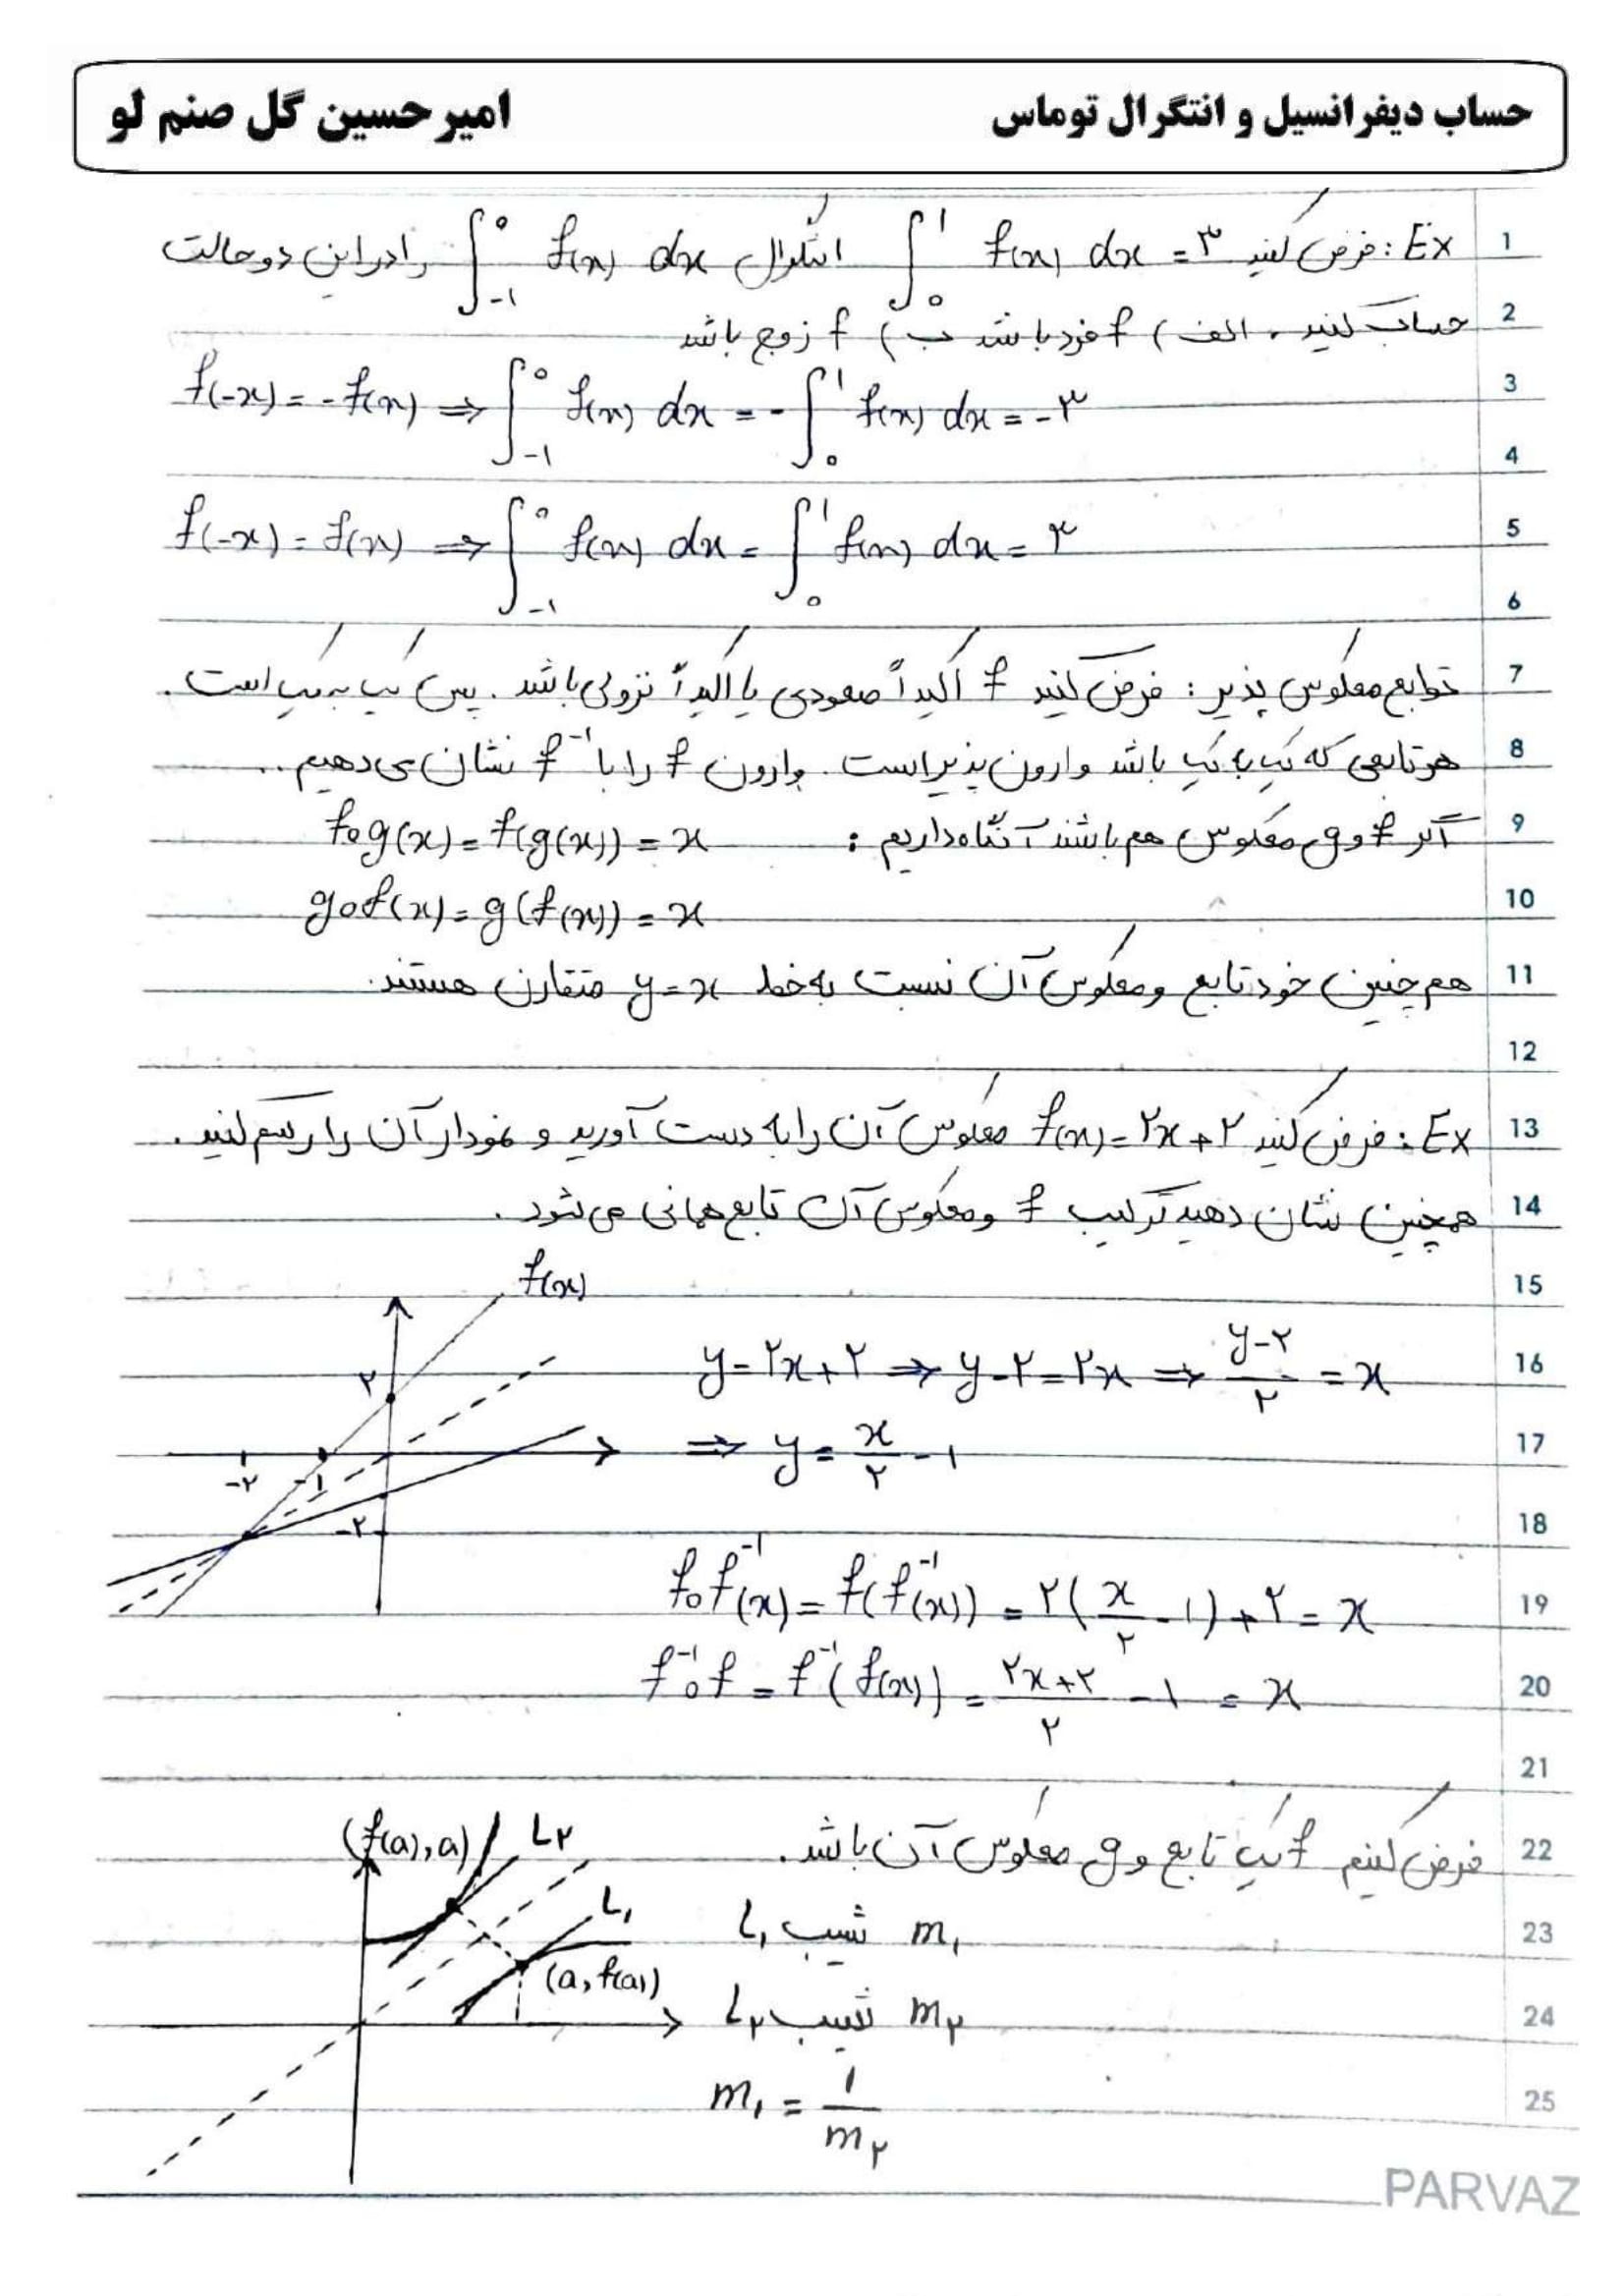 حساب دیفرانسیل و انتگرال توماس
امیرحسین گل صنم لو
1 Ex: فرض کنید ∫₀¹ f(x) dx = ۳ انتگرال ∫₋₁⁰ f(x) dx را در این دو حالت
2 حساب کنید. الف) f فرد باشد ب) f زوج باشد
3 f(-x) = -f(x) ⇒ ∫₋₁⁰ f(x) dx = -∫₀¹ f(x) dx = -۳
4
5 f(-x) = f(x) ⇒ ∫₋₁⁰ f(x) dx = ∫₀¹ f(x) dx = ۳
6
7 توابع معکوس پذیر: فرض کنید f اکیداً صعودی یا اکیداً نزولی باشد. پس یک به یک است.
8 هر تابعی که یک به یک باشد وارون پذیر است. وارون f را با f⁻¹ نشان می دهیم..
9 اگر f و g معکوس هم باشند آنگاه داریم: fog(x) = f(g(x)) = x
10 gof(x) = g(f(x)) = x
11 هم چنین خود تابع و معکوس آن نسبت به خط y=x متقارن هستند.
12
13 Ex: فرض کنید f(x)=۲x+۲ معکوس آن را به دست آورید و نمودار آن را رسم کنید.
14 همچنین نشان دهید ترکیب f و معکوس آن تابع همانی می شود.
15 f(x)
16 y=۲x+۲ ⇒ y-۲=۲x ⇒ (y-۲)/۲ = x
۲
17 ⇒ y = x/۲ - ۱
-۲ -۱
18 -۲
19 fof⁻¹(x) = f(f⁻¹(x)) = ۲(x/۲ - ۱) + ۲ = x
20 f⁻¹of = f⁻¹(f(x)) = (۲x+۲)/۲ - ۱ = x
21
22 فرض کنیم f یک تابع و g معکوس آن باشد.
(f(a), a) L۲
23 m₁ شیب L₁
L₁
(a, f(a))
24 m۲ شیب L۲
25 m₁ = ۱/m۲
PARVAZ